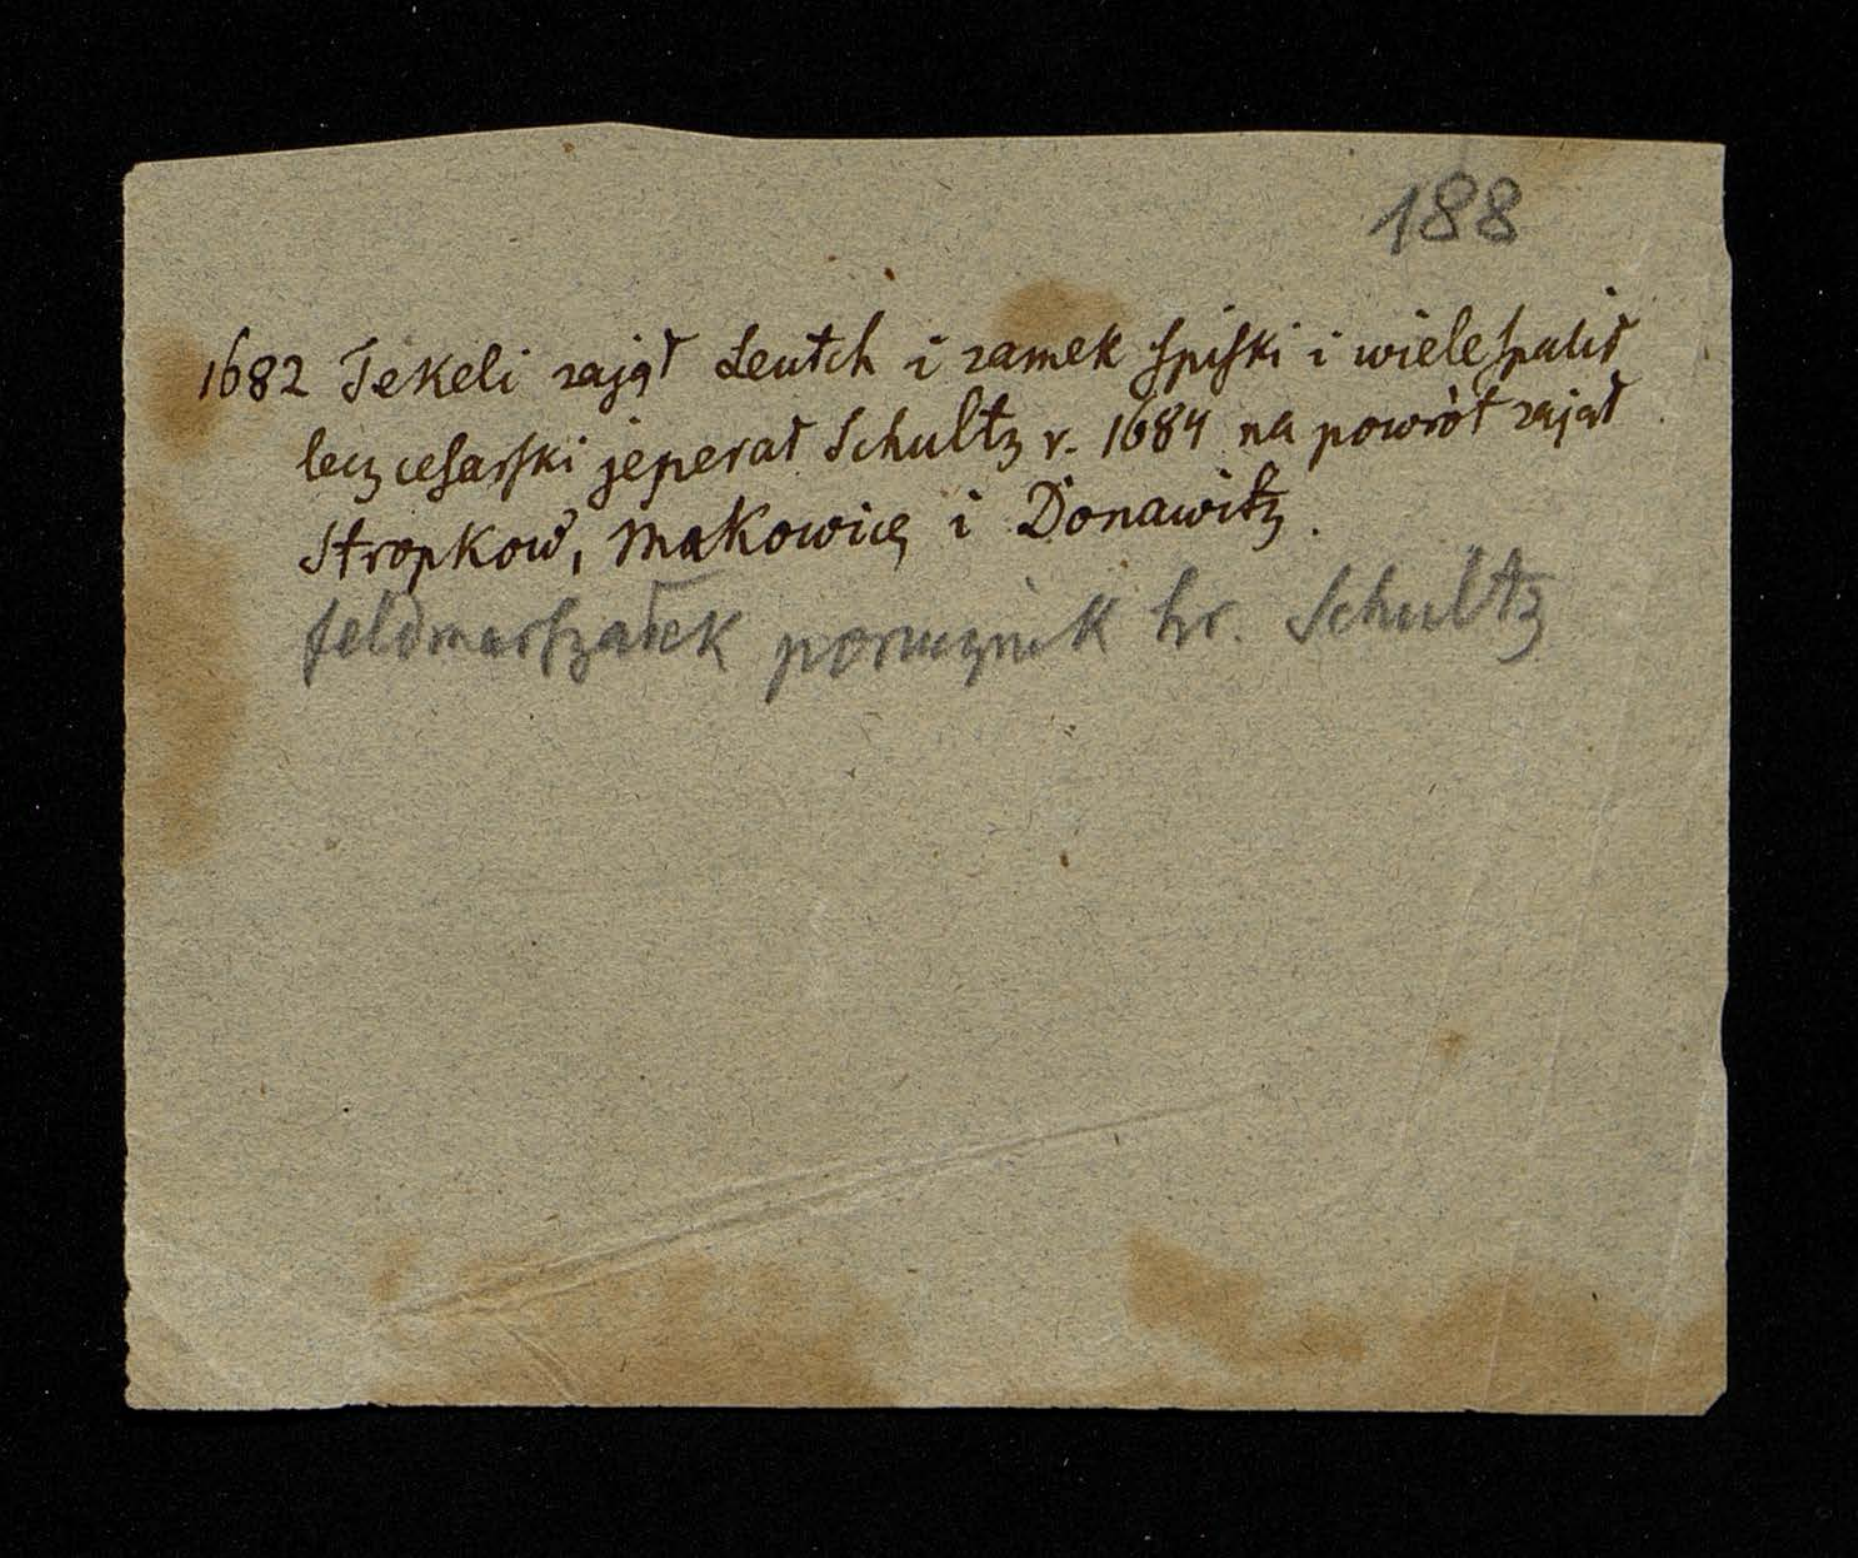 188
1682 Tekeli zajął Leutch i zamek Spiski i wiele spalił
lecz cesarski jenerał Schultz r. 1684 na powrót zajął
Stropkow, Makowicę i Donawitz.
feldmarszałek porucznik hr. Schultz